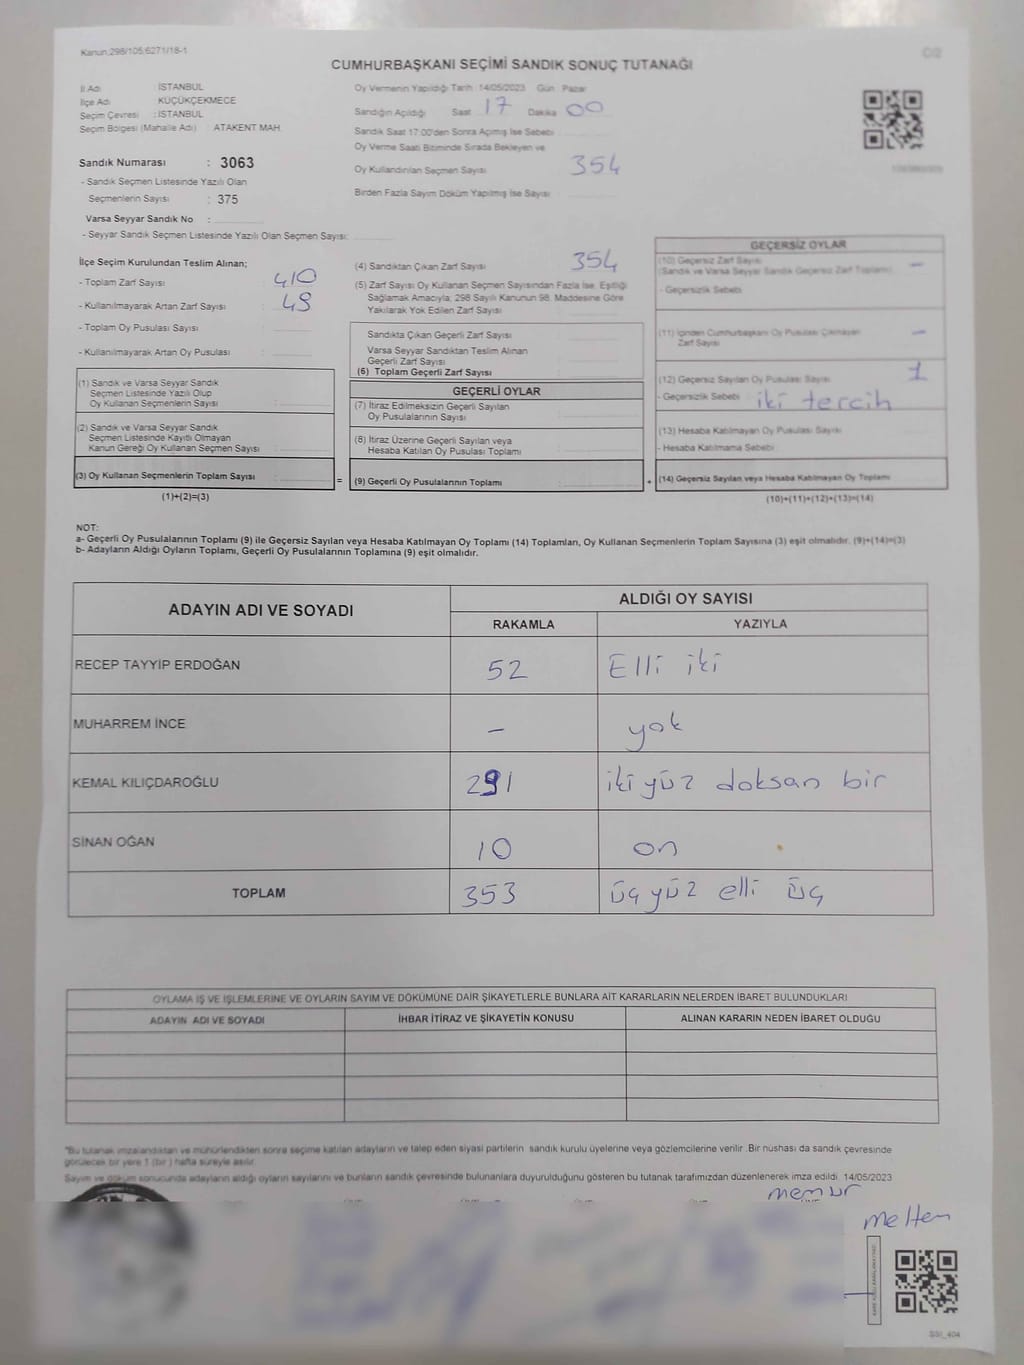 Kanun:298/105;6271/18-1
CUMHURBAŞKANI SEÇİMİ SANDIK SONUÇ TUTANAĞI
İl Adı İSTANBUL
İlçe Adı KÜÇÜKÇEKMECE
Seçim Çevresi : İSTANBUL
Seçim Bölgesi (Mahalle Adı) : ATAKENT MAH.
Sandık Numarası : 3063
- Sandık Seçmen Listesinde Yazılı Olan
Seçmenlerin Sayısı : 375
Varsa Seyyar Sandık No :
- Seyyar Sandık Seçmen Listesinde Yazılı Olan Seçmen Sayısı:
Oy Vermenin Yapıldığı Tarih : 14/05/2023 Gün : Pazar
Sandığın Açıldığı Saat 17 Dakika 00
Sandık Saat 17:00'den Sonra Açımış İse Sebebi
Oy Verme Saati Bitiminde Sırada Bekleyen ve
Oy Kullandırılan Seçmen Sayısı 354
Birden Fazla Sayım Döküm Yapılmış İse Sayısı
İlçe Seçim Kurulundan Teslim Alınan;
- Toplam Zarf Sayısı : 410
- Kullanılmayarak Artan Zarf Sayısı :
- Toplam Oy Pusulası Sayısı :
- Kullanılmayarak Artan Oy Pusulası :
(1) Sandık ve Varsa Seyyar Sandık
Seçmen Listesinde Yazılı Olup
Oy Kullanan Seçmenlerin Sayısı :
(2) Sandık ve Varsa Seyyar Sandık
Seçmen Listesinde Kayıtlı Olmayan
Kanun Gereği Oy Kullanan Seçmen Sayısı :
(3) Oy Kullanan Seçmenlerin Toplam Sayısı :
(1)+(2)=(3)
(4) Sandıktan Çıkan Zarf Sayısı 354
(5) Zarf Sayısı Oy Kullanan Seçmen Sayısından Fazla İse, Eşitliği
Sağlamak Amacıyla; 298 Sayılı Kanunun 98. Maddesine Göre
Yakılarak Yok Edilen Zarf Sayısı
Sandıkta Çıkan Geçerli Zarf Sayısı
Varsa Seyyar Sandıktan Teslim Alınan
Geçerli Zarf Sayısı
(6) Toplam Geçerli Zarf Sayısı
GEÇERLİ OYLAR
(7) İtiraz Edilmeksizin Geçerli Sayılan
Oy Pusulalarının Sayısı
(8) İtiraz Üzerine Geçerli Sayılan veya
Hesaba Katılan Oy Pusulası Toplamı
= (9) Geçerli Oy Pusulalarının Toplamı
GEÇERSİZ OYLAR
(10) Geçersiz Zarf Sayısı –
(Sandık ve Varsa Seyyar Sandık Geçersiz Zarf Toplamı)
- Geçersizlik Sebebi
(11) İçinden Cumhurbaşkanı Oy Pusulası Çıkmayan –
Zarf Sayısı
(12) Geçersiz Sayılan Oy Pusulası Sayısı 1
- Geçersizlik Sebebi iki tercih
(13) Hesaba Katılmayan Oy Pusulası Sayısı
- Hesaba Katılmama Sebebi
+ (14) Geçersiz Sayılan veya Hesaba Katılmayan Oy Toplamı
(10)+(11)+(12)+(13)=(14)
NOT:
a- Geçerli Oy Pusulalarının Toplamı (9) ile Geçersiz Sayılan veya Hesaba Katılmayan Oy Toplamı (14) Toplamları, Oy Kullanan Seçmenlerin Toplam Sayısına (3) eşit olmalıdır. (9)+(14)=(3)
b- Adayların Aldığı Oyların Toplamı, Geçerli Oy Pusulalarının Toplamına (9) eşit olmalıdır.
ADAYIN ADI VE SOYADI
ALDIĞI OY SAYISI
RAKAMLA YAZIYLA
RECEP TAYYİP ERDOĞAN 52 Elli iki
MUHARREM İNCE – yok
KEMAL KILIÇDAROĞLU 291 ikiyüz doksan bir
SİNAN OĞAN 10 on
TOPLAM 353 üçyüz elli üç
OYLAMA İŞ VE İŞLEMLERİNE VE OYLARIN SAYIM VE DÖKÜMÜNE DAİR ŞİKAYETLERLE BUNLARA AİT KARARLARIN NELERDEN İBARET BULUNDUKLARI
ADAYIN ADI VE SOYADI İHBAR İTİRAZ VE ŞİKAYETİN KONUSU ALINAN KARARIN NEDEN İBARET OLDUĞU
*Bu tutanak imzalandıktan ve mühürlendikten sonra seçime katılan adayların ve talep eden siyasi partilerin sandık kurulu üyelerine veya gözlemcilerine verilir. Bir nüshası da sandık çevresinde
görülecek bir yere 1 (bir ) hafta süreyle asılır.
Sayım ve döküm sonucunda adayların aldığı oyların sayılarını ve bunların sandık çevresinde bulunanlara duyurulduğunu gösteren bu tutanak tarafımızdan düzenlenerek imza edildi. 14/05/2023
memur
meltem
SSI_404